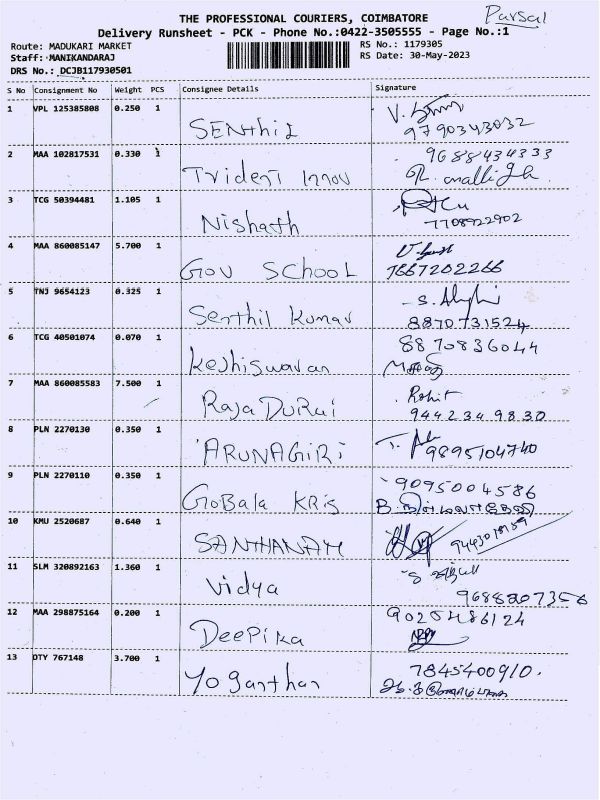 THE PROFESSIONAL COURIERS, COIMBATORE
Parsal
Delivery Runsheet - PCK - Phone No.:0422-3505555 - Page No.:1
Route: MADUKARI MARKET
RS No.: 1179305
Staff: MANIKANDARAJ
RS Date: 30-May-2023
DRS No.: DCJB117930501
S No Consignment No Weight PCS Consignee Details Signature
1 VPL 125385808 0.250 1
SENthil
9790343032
2 MAA 102817531 0.330 1
9688434333
Trident Innov
3 TCG 50394481 1.105 1
Nishath
7708922902
4 MAA 860085147 5.700 1
GOV SCHOOL 7667202266
5 TNJ 9654123 0.325 1
Senthil Kumar
8870731524
6 TCG 40501074 0.070 1
8870836044
Keshiswaran
7 MAA 860085583 7.500 1
Rohit
Raja Durai
9442349830
8 PLN 2270130 0.350 1
ARUNAGIRI 9895104740
9 PLN 2270110 0.350 1
9095004586
GoBala KRIS
10 KMU 2520687 0.640 1
SANTHANAM
11 SLM 320892163 1.360 1
Vidya
12 MAA 298875164 0.200 1
9025486124
Deepika
13 DTY 767148 3.700 1
7845400910.
Yoganthan